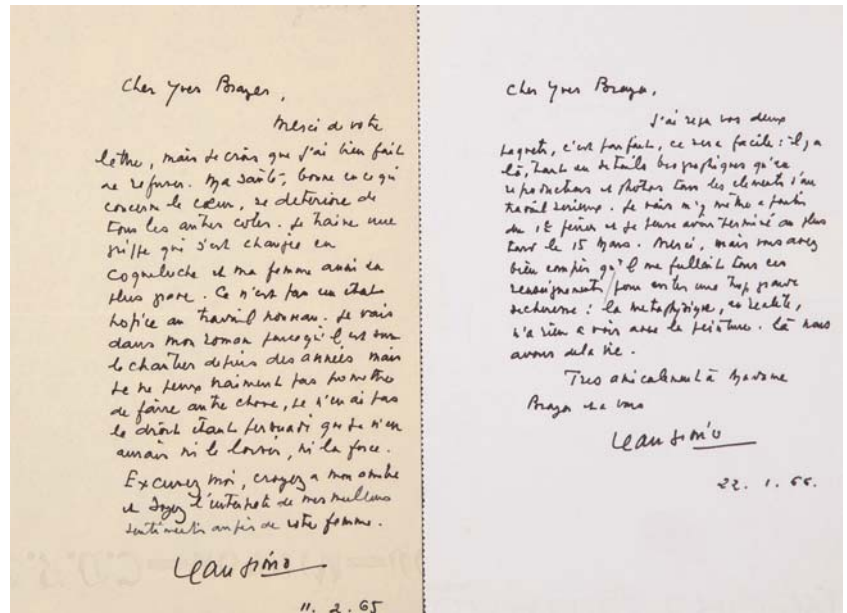 Cher Yves Brayer,
Merci de votre
lettre, mais je crois que j'ai bien fait
de refuser. Ma santé, bonne en ce qui
concerne le cœur, se déteriore de
tous les autres cotés. Je traine une
grippe qui s'est changée en
coqueluche et ma femme aussi en
plus grave. Ce n'est pas un état
propice au travail nouveau. Je vais
dans mon roman parce qu'il est sur
le chantier depuis des années mais
je ne peux vraiment pas promettre
de faire autre chose, je n'en ai pas
le droit étant persuadé que je n'en
aurais ni le loisir, ni la force.
Excusez moi, croyez a mon amitié
et soyez l'interprete de mes meilleurs
sentiments auprès de votre femme.
Jean Giono
11. 2. 65
Cher Yves Brayer,
J'ai reçu vos deux
paquets, c'est parfait, ce sera facile : il y a
là, tant en details biographiques qu'en
reproductions et photos tous les elements d'un
travail serieux. Je vais m'y mettre a partir
du 1er février et je pense avoir terminé au plus
tard le 15 Mars. Merci, mais vous avez
bien compris qu'il me fallait tous ces
renseignements pour eviter une trop grande
secheresse : la metaphysique, en realité,
n'a rien a voir avec la peinture. Là nous
avons de la vie.
Tres amicalement à Madame
Brayer et a vous
Jean Giono
22. 1. 66.